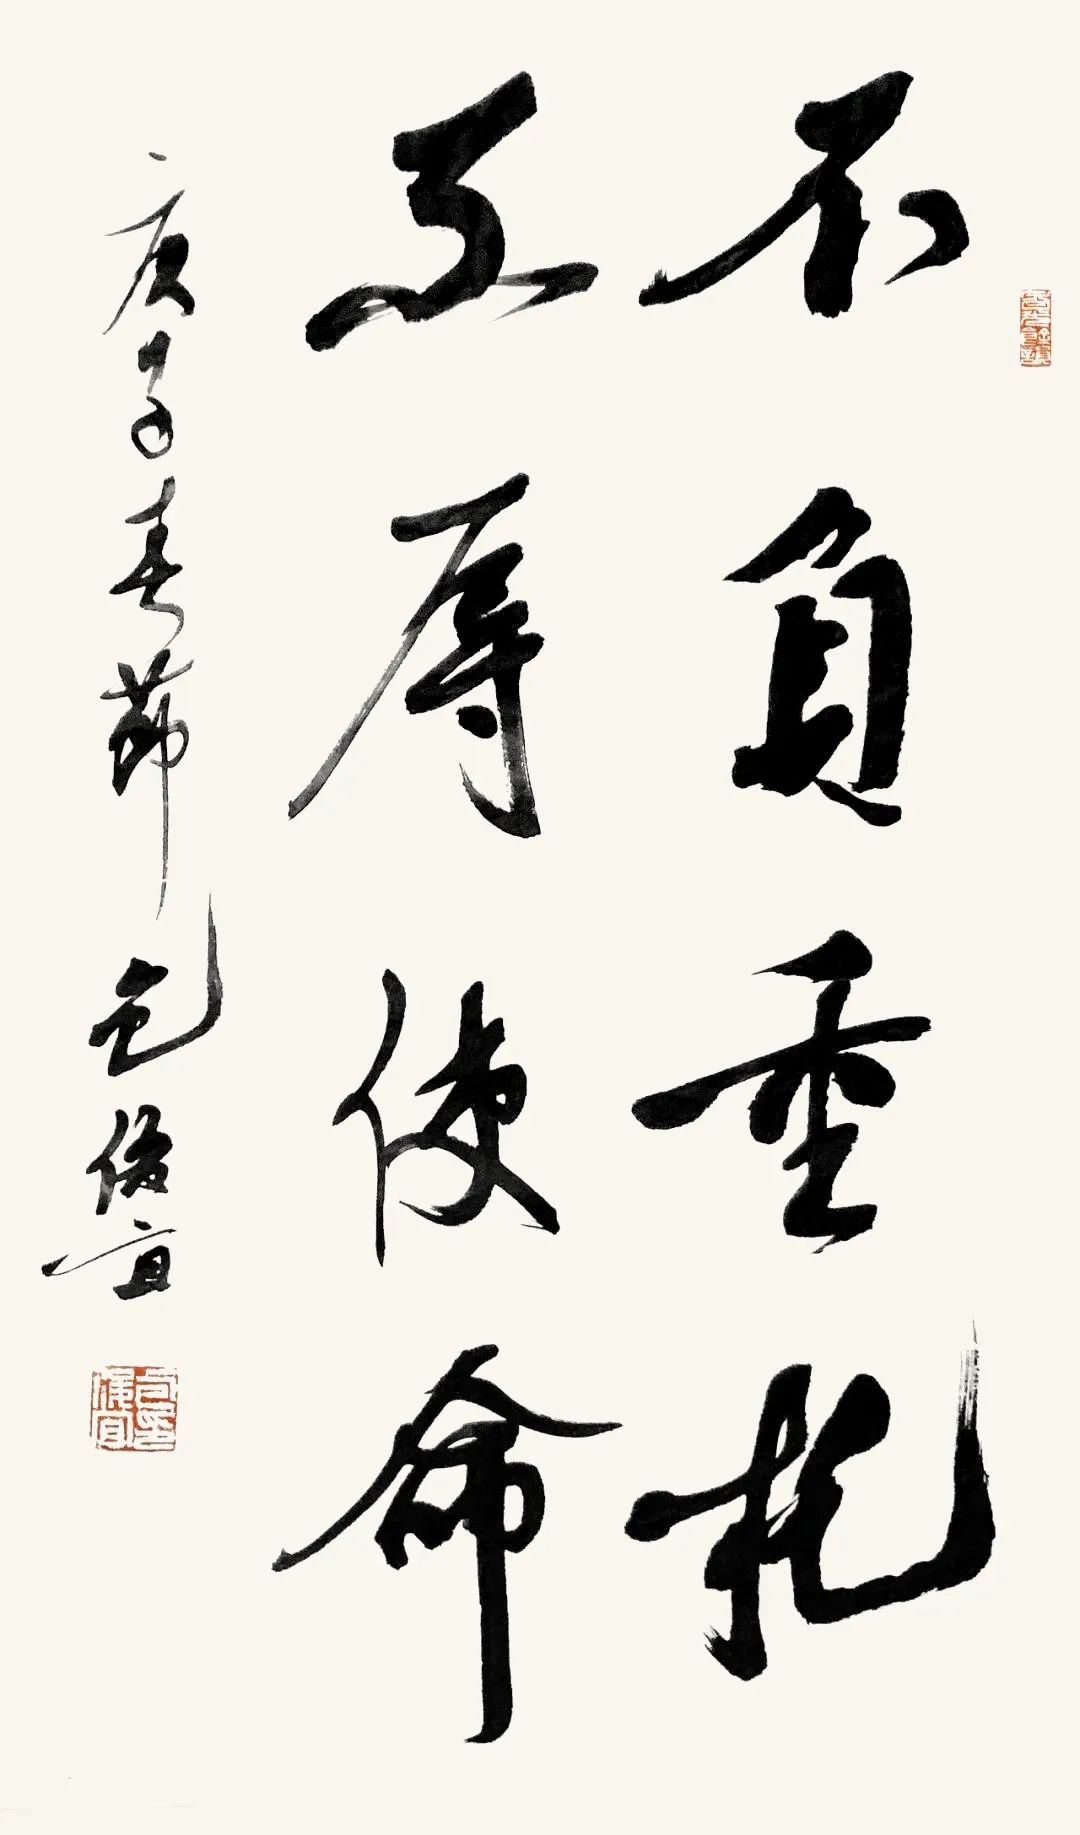 不負重托
不辱使命
庚子春節包俊宜